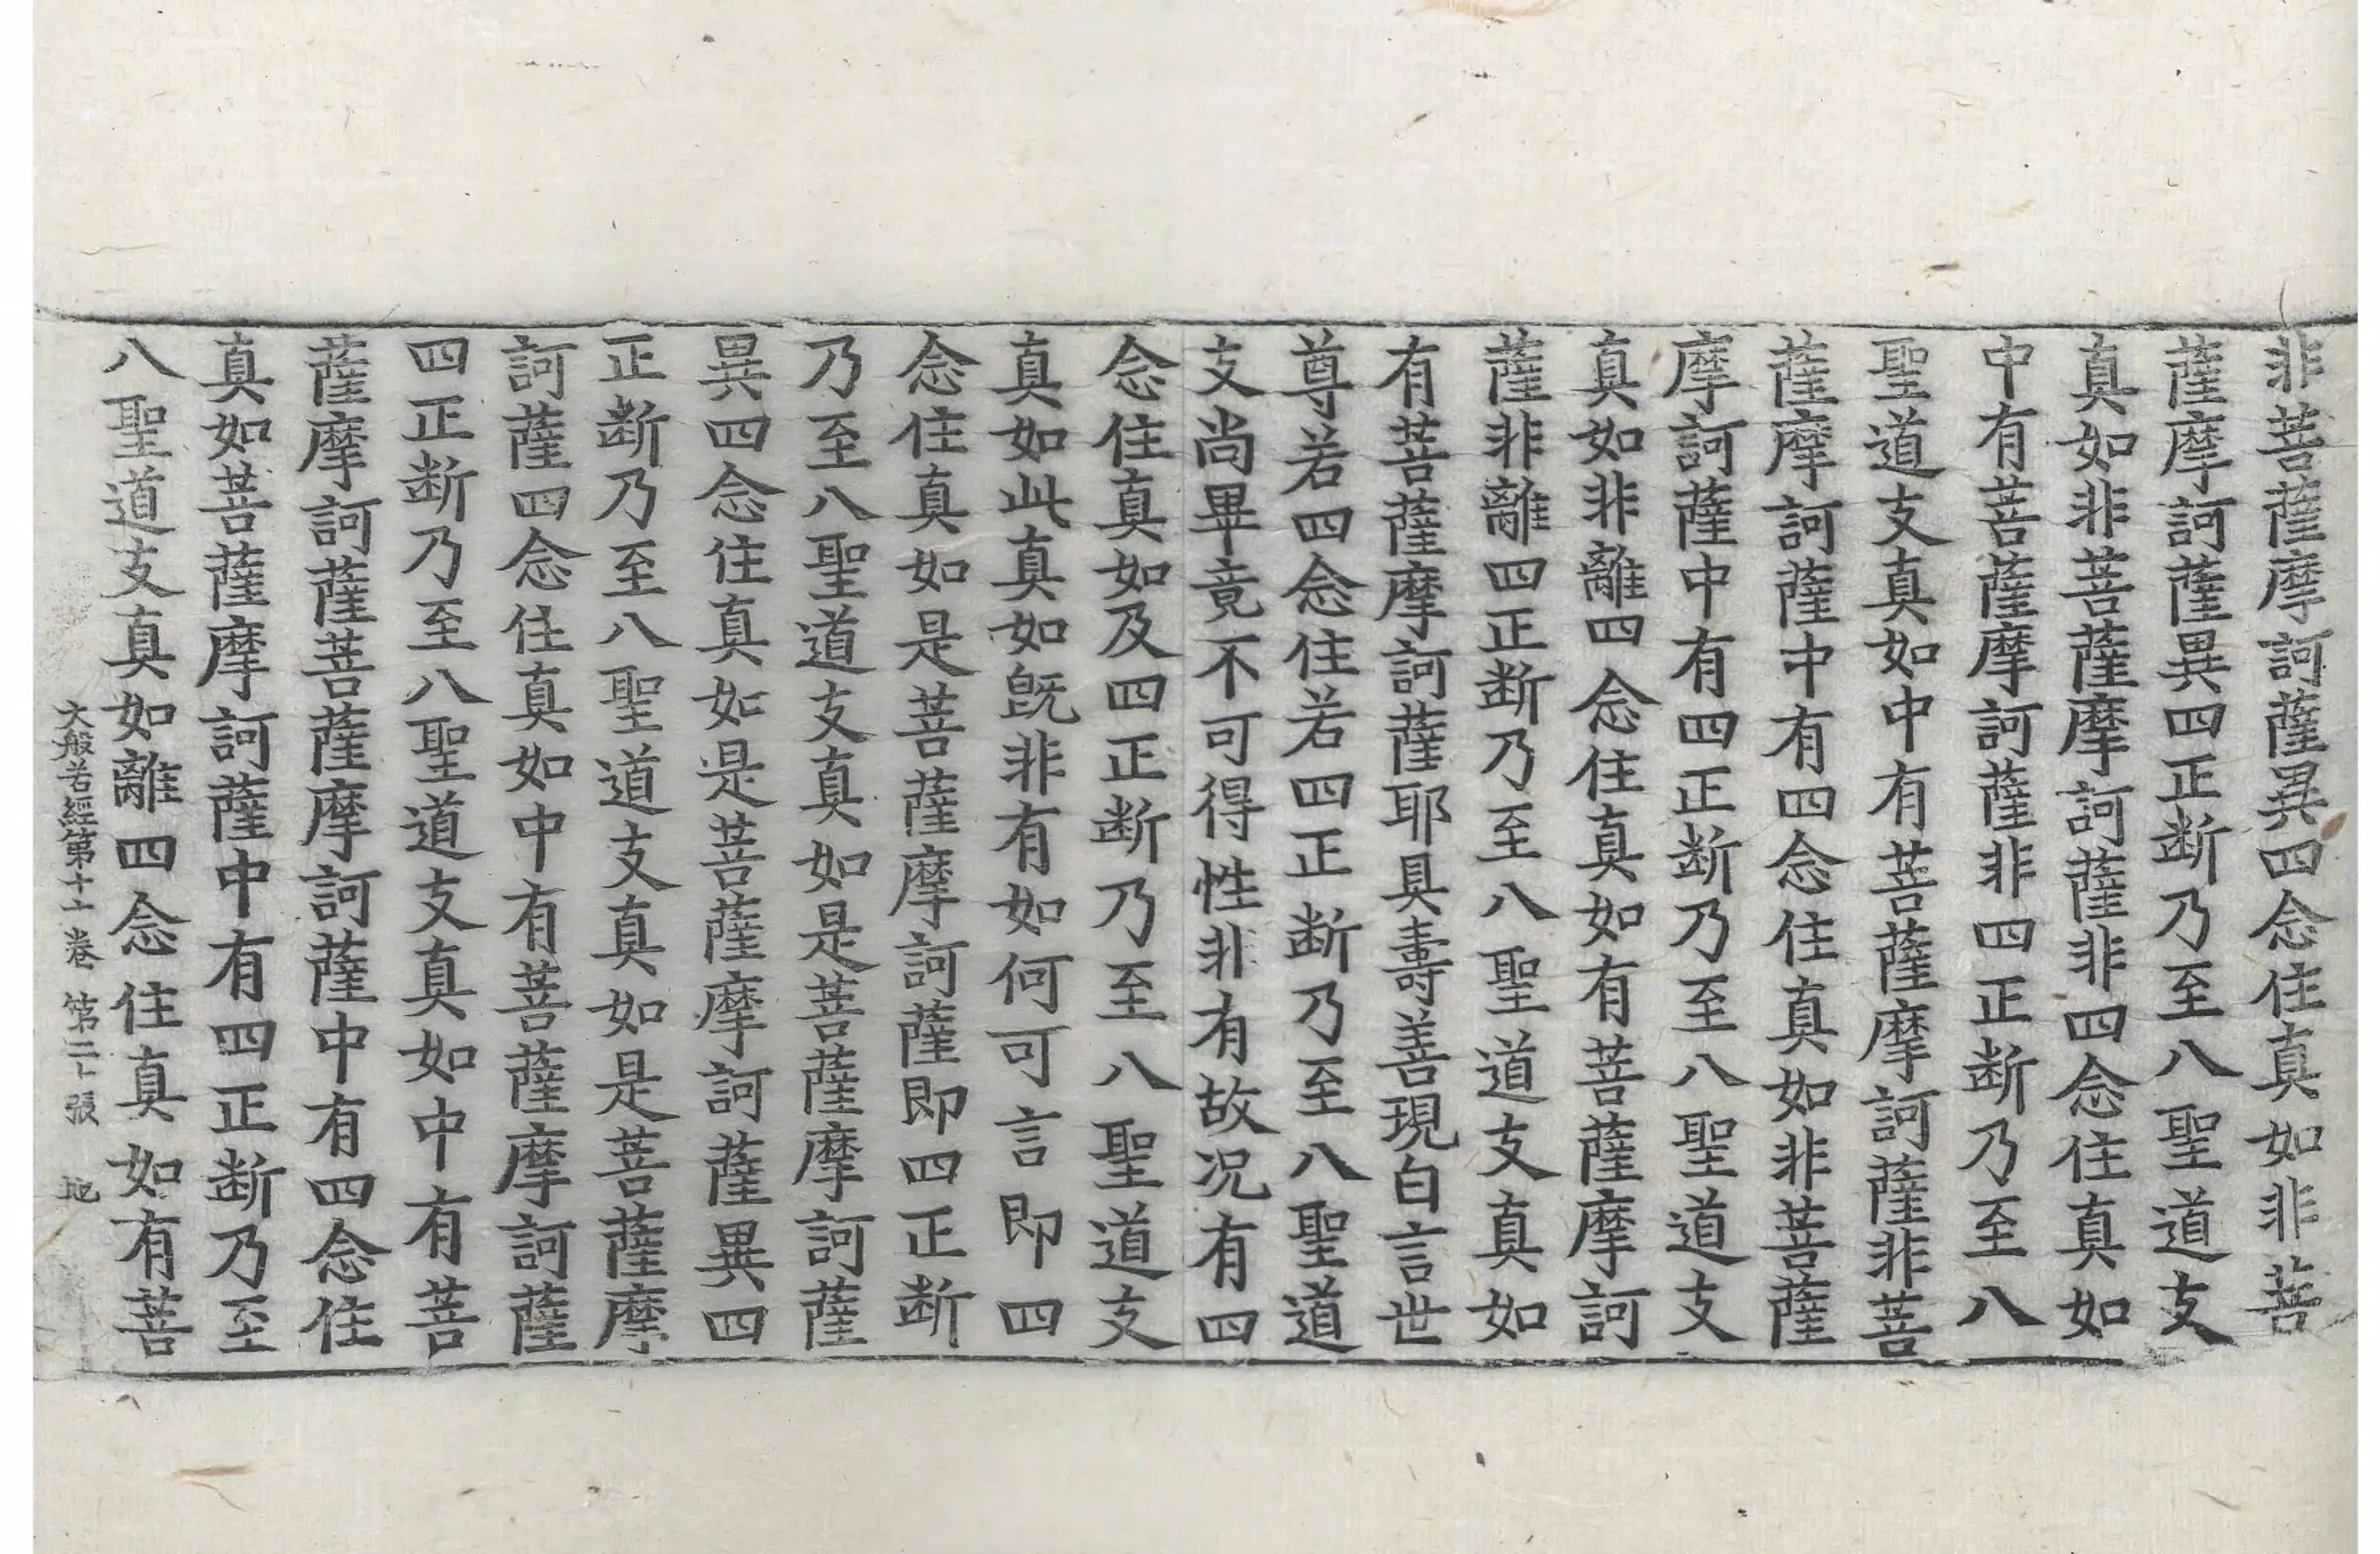 非菩薩摩訶薩異四念住真如非菩
薩摩訶薩異四正断乃至八聖道支
真如非菩薩摩訶薩非四念住真如
中有菩薩摩訶薩非四正断乃至八
聖道支真如中有菩薩摩訶薩非菩
薩摩訶薩中有四念住真如非菩薩
摩訶薩中有四正断乃至八聖道支
真如非離四念住真如有菩薩摩訶
薩非離四正断乃至八聖道支真如
有菩薩摩訶薩耶具壽善現白言世
尊若四念住若四正断乃至八聖道
支尚畢竟不可得性非有故况有四
念住真如及四正断乃至八聖道支
真如此真如旣非有如何可言即四
念住真如是菩薩摩訶薩即四正断
乃至八聖道支真如是菩薩摩訶薩
異四念住真如是菩薩摩訶薩異四
正断乃至八聖道支真如是菩薩摩
訶薩四念住真如中有菩薩摩訶薩
四正断乃至八聖道支真如中有菩
薩摩訶薩菩薩摩訶薩中有四念住
真如菩薩摩訶薩中有四正断乃至
八聖道支真如離四念住真如有菩
大般若經第十卷 第二十張 地